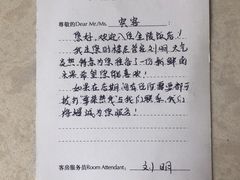 尊敬的Dear Mr./Ms. 宾客
您好，欢迎入住金陵饭店！
我是您的楼层管家刘明，天气
炎热，特意为您准备了一份新鲜的
水果，希望您能喜欢！
如果在后期间有任何需要都可
拨打“ 服务”与我们联系，我们
将竭诚为您服务！
客房服务员Room Attendant: 刘明